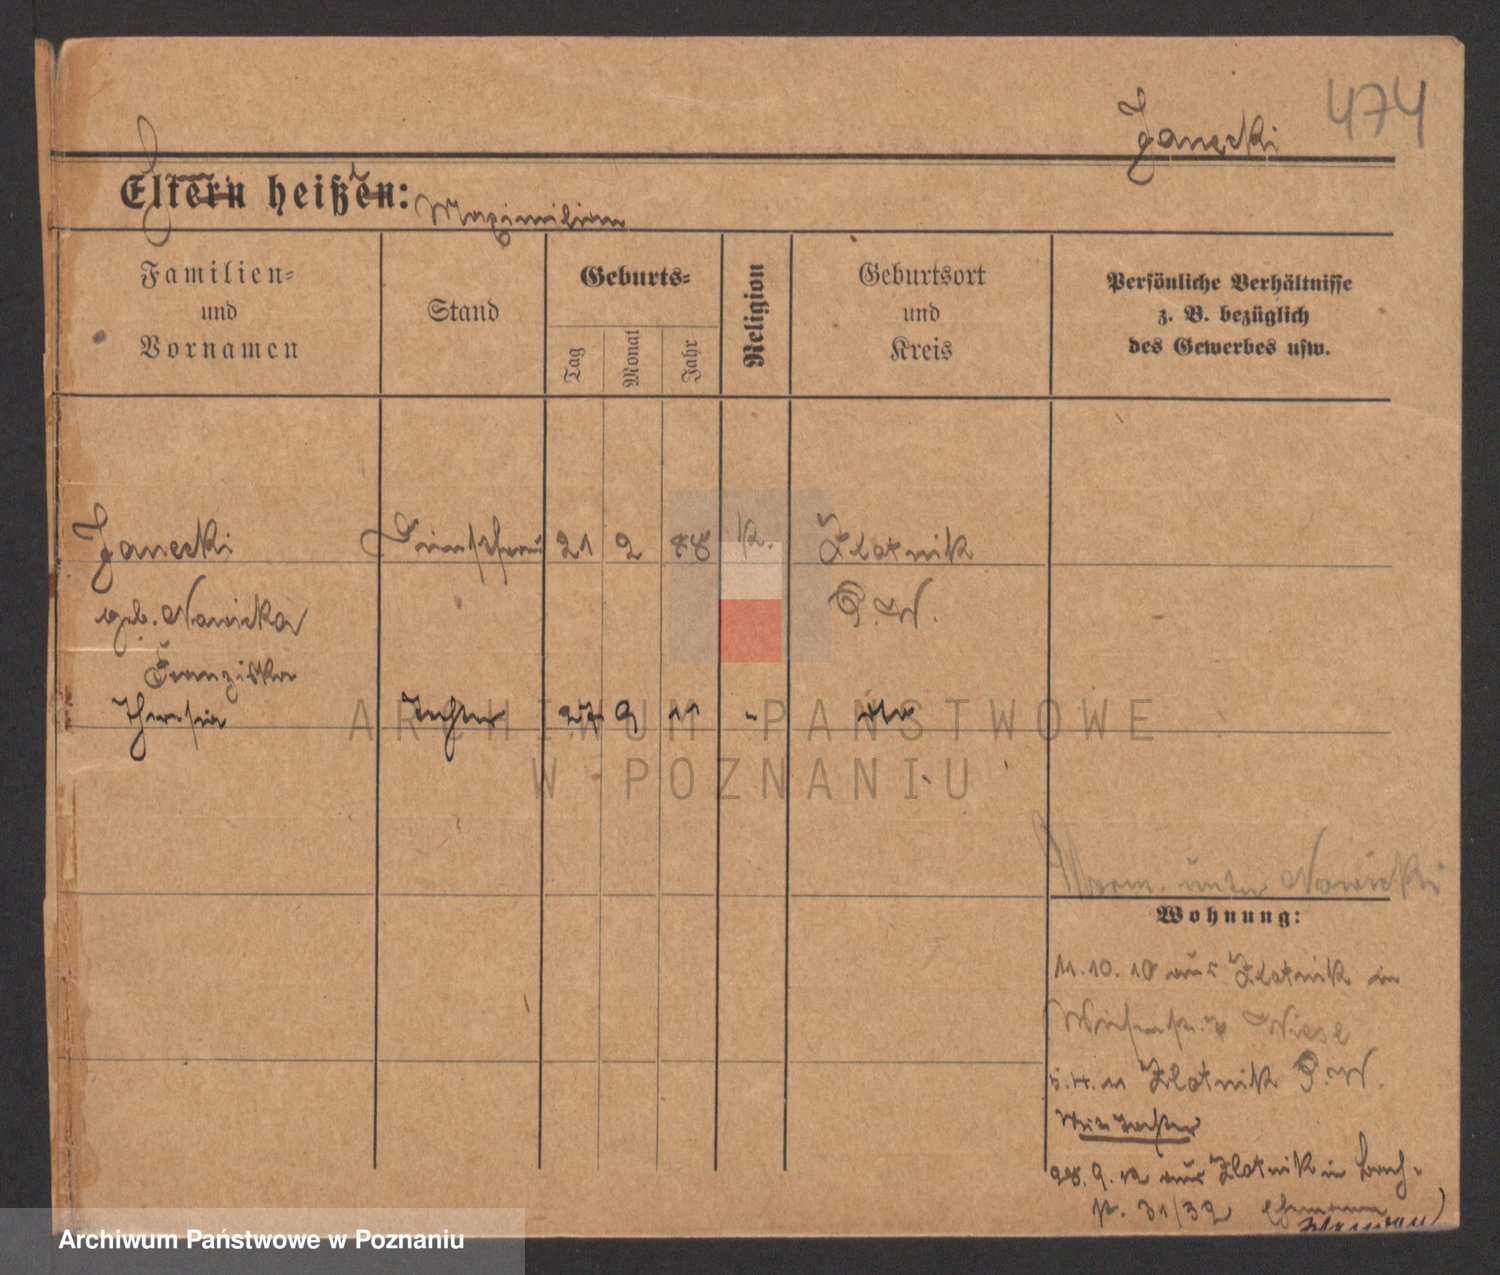 474
Janecki
Eltern heißen:
Maximilian
Familien-
und
Vornamen
Stand
Geburts-
Tag
Monat
Jahr
Religion
Geburtsort
und
Kreis
Persönliche Verhältnisse
z. B. bezüglich
des Gewerbes usw.
Janecki 21 2 k. Zlotnik
geb. Nowicka P.W.
Franziska
Theresia Tochter 27 9 11 -
ARCHIWUM PAŃSTWOWE
W POZNANIU
unter Nowicki
Wohnung:
11.10.10 aus Zlotnik in
Wiese
5.4.11 Zlotnik P.W.
28.9. aus Zlotnik in Bach-
str. 31/32 Ehemann
Archiwum Państwowe w Poznaniu